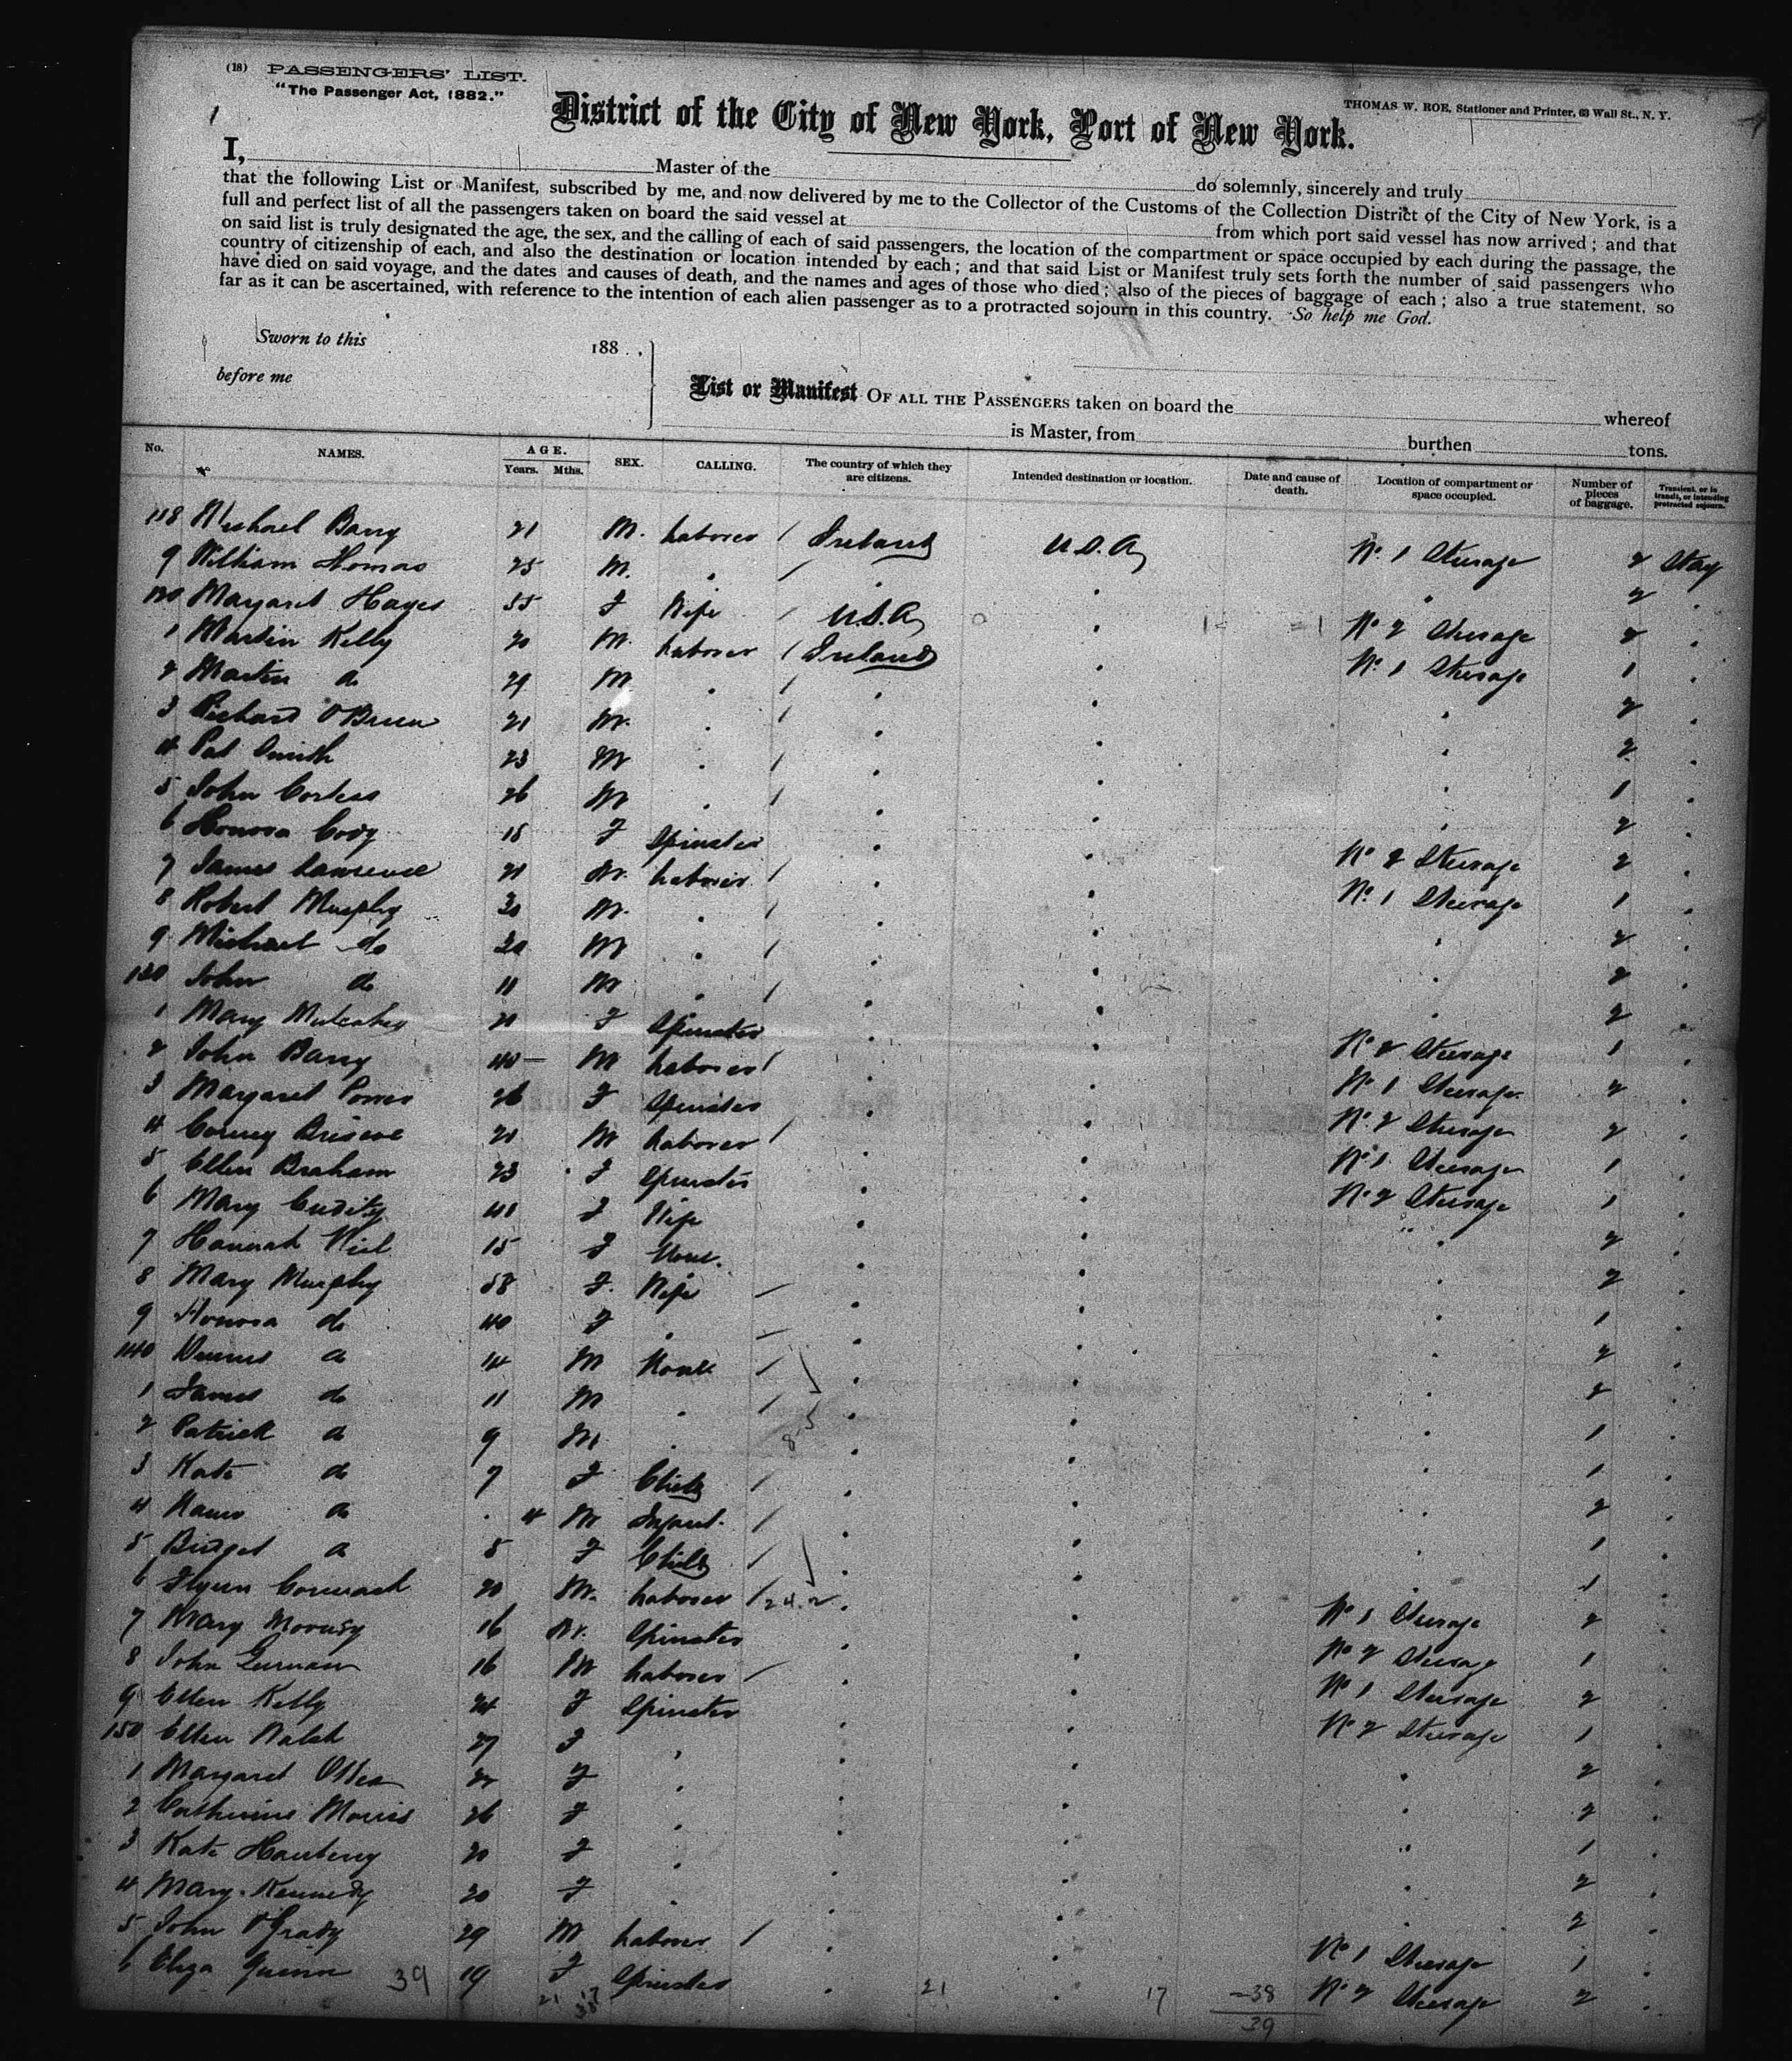 (18) PASSENGERS' LIST.
"The Passenger Act, 1882."
THOMAS W. ROE, Stationer and Printer, 63 Wall St., N. Y.
1
District of the City of New York, Port of New York.
I, Master of the do solemnly, sincerely and truly
that the following List or Manifest, subscribed by me, and now delivered by me to the Collector of the Customs of the Collection District of the City of New York, is a
full and perfect list of all the passengers taken on board the said vessel at from which port said vessel has now arrived; and that
on said list is truly designated the age, the sex, and the calling of each of said passengers, the location of the compartment or space occupied by each during the passage, the
country of citizenship of each, and also the destination or location intended by each; and that said List or Manifest truly sets forth the number of said passengers who
have died on said voyage, and the dates and causes of death, and the names and ages of those who died; also of the pieces of baggage of each; also a true statement, so
far as it can be ascertained, with reference to the intention of each alien passenger as to a protracted sojourn in this country. So help me God.
Sworn to this 188 .,
before me
List or Manifest OF ALL THE PASSENGERS taken on board the whereof
is Master, from burthen tons.
No. NAMES. AGE. Years. Mths. SEX. CALLING. The country of which they are citizens. Intended destination or location. Date and cause of death. Location of compartment or space occupied. Number of pieces of baggage. Transient, or in transit, or intending protracted sojourn.
118 Michael Barry 21 M. Laborer / Ireland U.S.A. No. 1 Steerage 2 Stay
9 William Thomas 25 M. " / " " " 2 "
120 Margaret Hayes 55 F Wife / U.S.A. " No 2 Steerage 2 "
1 Martin Kelly 20 M. Laborer / Ireland " No. 1 Steerage 1 "
2 Martin do 29 M " / " " " 2 "
3 Richard O'Brien 21 M. " / " " " 2 "
4 Pat Smith 23 M " / " " " 1 "
5 John Corless 26 M " / " " " 2 "
6 Honora Cody 18 F Spinster " " No 2 Steerage 2 "
7 James Lawrence 21 M. Laborer / " " No. 1 Steerage 1 "
8 Robert Murphy 30 M. " / " " " 2 "
9 Michael do 20 M " / " " " 2 "
130 John do 11 M " / " " " 2 "
1 Mary 20 F Spinster " " No 2 Steerage 1 "
2 John Barry 40 M Laborer / " " No 1 Steerage 2 "
3 Margaret Power 26 F Spinster " " No. 2 Steerage 2 "
4 Briscoe 21 M Laborer / " " No 1 Steerage 1 "
5 Ellen Braham 23 F Spinster " " No 2 Steerage 1 "
6 Mary Cudity 40 F Wife " " " 2 "
7 Hannah 15 F None. " " " 2 "
8 Mary Murphy 58 F. Wife — " " " 1 "
9 Honora do 40 F " — " " " 2 "
140 Dennis do 14 M None / " " " 2 "
1 James do 11 M " / " " " 1 "
2 Patrick do 9 M " " " " 1 "
3 Kate do 7 F Child / " " " 2 "
4 do 4 M Infant. / " " " 1 "
5 Bridget do 8 F Child / " " " 1 "
6 Flynn Cormack 20 M. Laborer / " " No 1 Steerage 2 "
7 Mary 16 M. Spinster " " No 2 Steerage 1 "
8 John 16 M Laborer / " " No 1 Steerage 2 "
9 Ellen Kelly 24 F Spinster " " No 2 Steerage 1 "
150 Ellen Walsh 27 F " " " " 2 "
1 Margaret F " " " " 2 "
2 Catherine Morris 26 F " " " " 1 "
3 Kate 20 F " " " " 2 "
4 Mary Kennedy 20 F " " " " 2 "
5 John O'Grady 29 M Laborer / " " No 1 Steerage 1 "
6 Eliza Quinn 39 19 F Spinster " 21 " 17 –38 No 2 Steerage 2 "
21 17
38
39